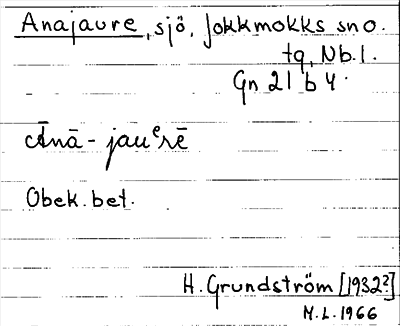 Anajaure, sjö, Jokkmokks sno.
tg, Nb.l.
Gn 21 b 4.
Ānā-jauᵉrē
Obek. bet.
H. Grundström [1932?]
M.L. 1966